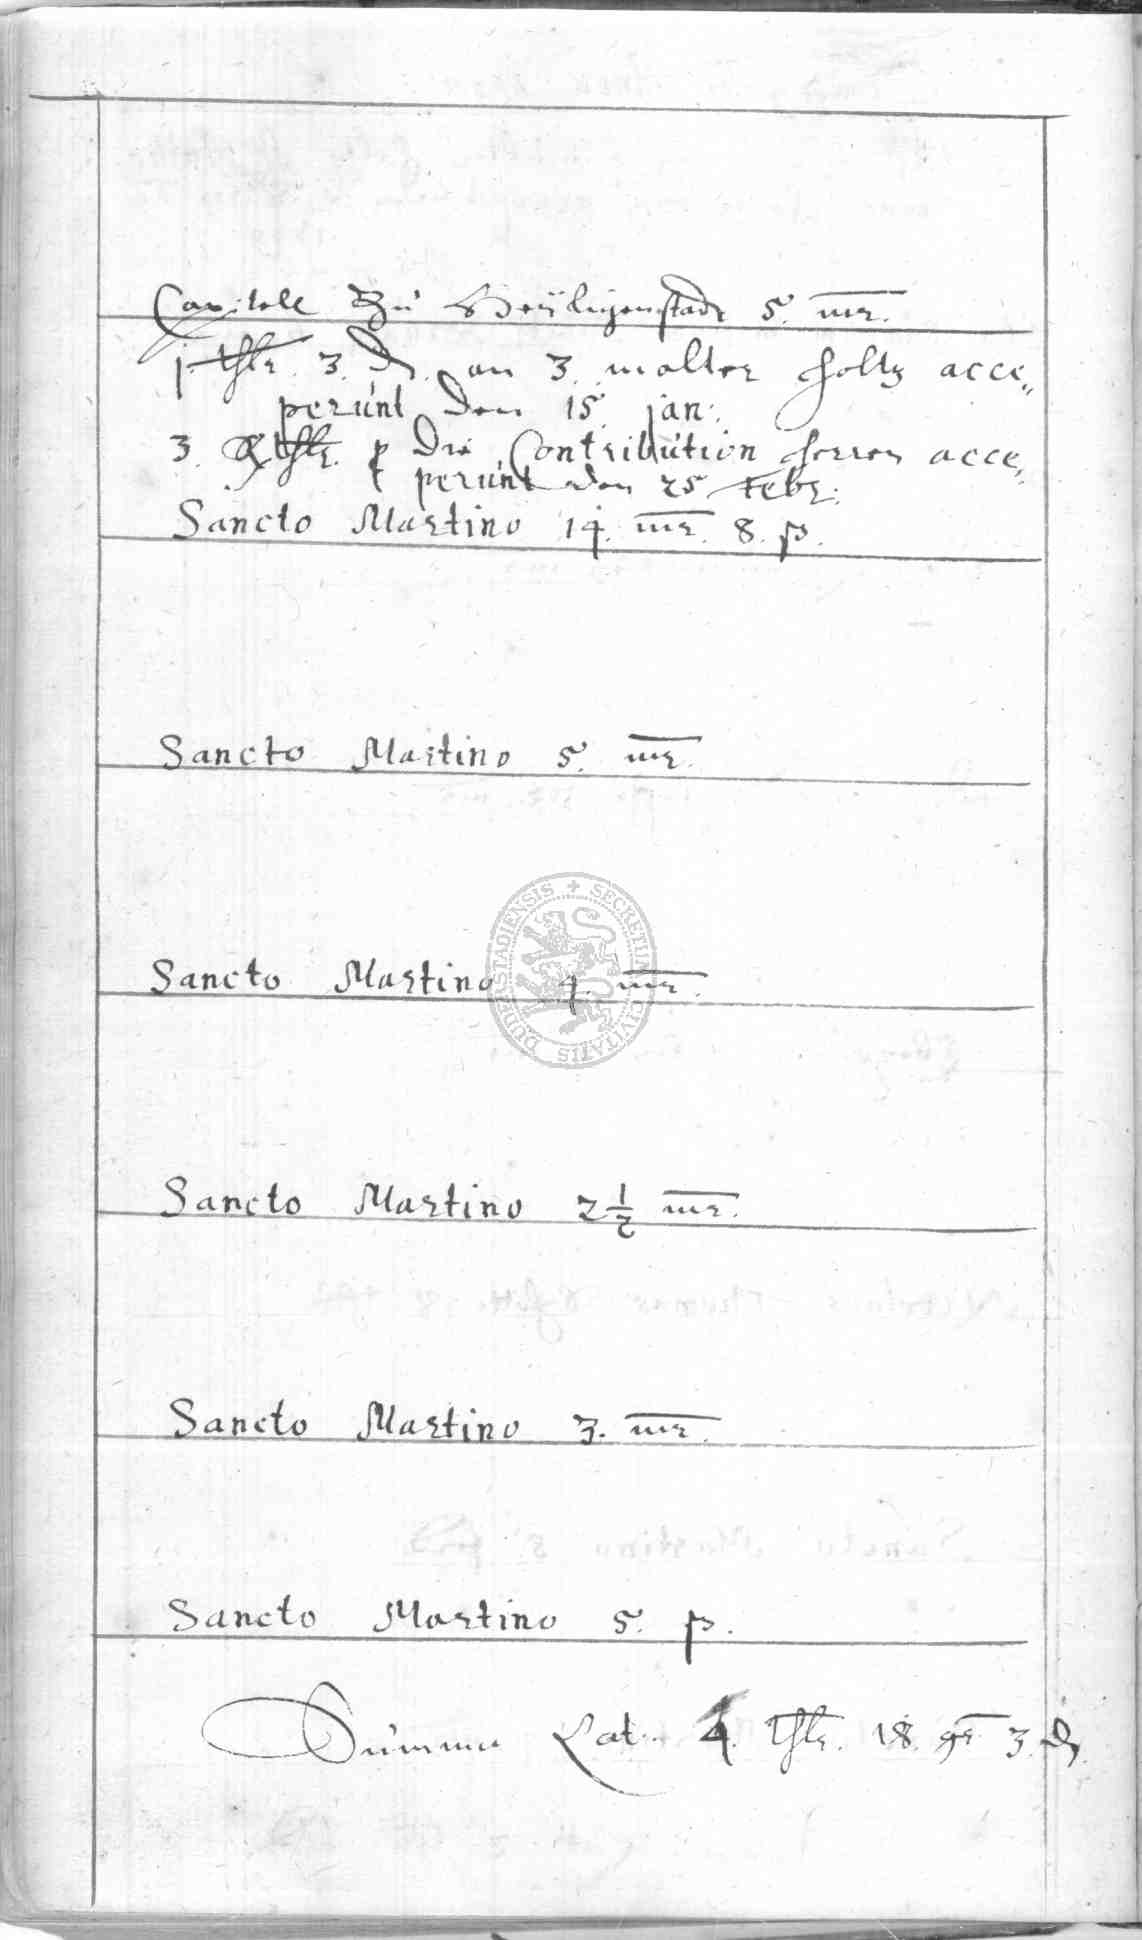 Capitell zu Heÿligenstadt 5. mr.
1. thlr. 3. d. an 3. malter holtz acce„
perúnt den 15 jan:
3. thlr. p die Contribútion herren acce„
perúnt den 25 Febr:
Sancto Martino 14. mr. 8. ß.
Sancto Martino 5. mr.
Sancto Martino 4. mr.
Sancto Martino 2 1/2 mr.
Sancto Martino 3. mr.
Sancto Martino 5. ß.
Súmma Lat. 4. thlr. 18. gr 3. d
SECRETUM CIVITATIS DUDERSTADIENSIS